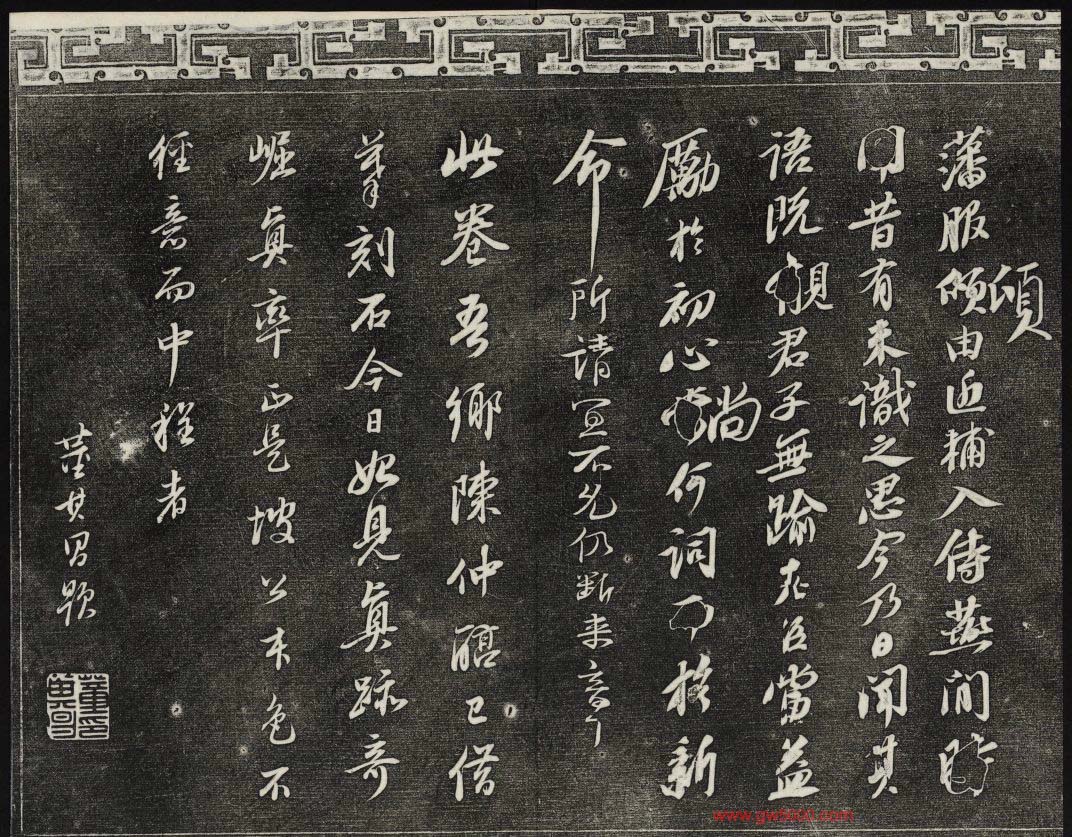 頃
藩服由近輔入侍燕閒
昔有未識之思今乃日聞其
語既君子無踰老臣當益
勵於初心尚何詞於新
命所請宜不允仍斷來章
此卷吾鄉陳仲醇已借
摹刻石今日始見真跡奇
崛真率正是坡公本色不
經意而中程者
董其昌題